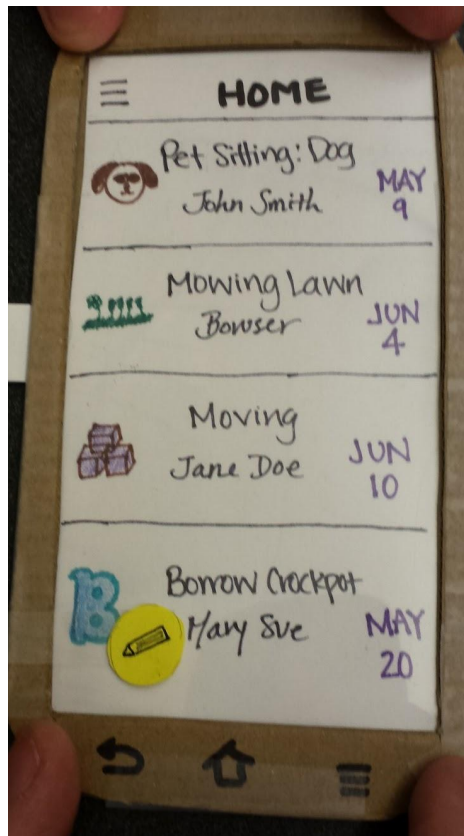 HOME
Pet Sitting: Dog
John Smith
MAY
9
Mowing Lawn
Bowser
JUN
4
Moving
Jane Doe
JUN
10
B
Borrow Crockpot
Mary Sue
MAY
20